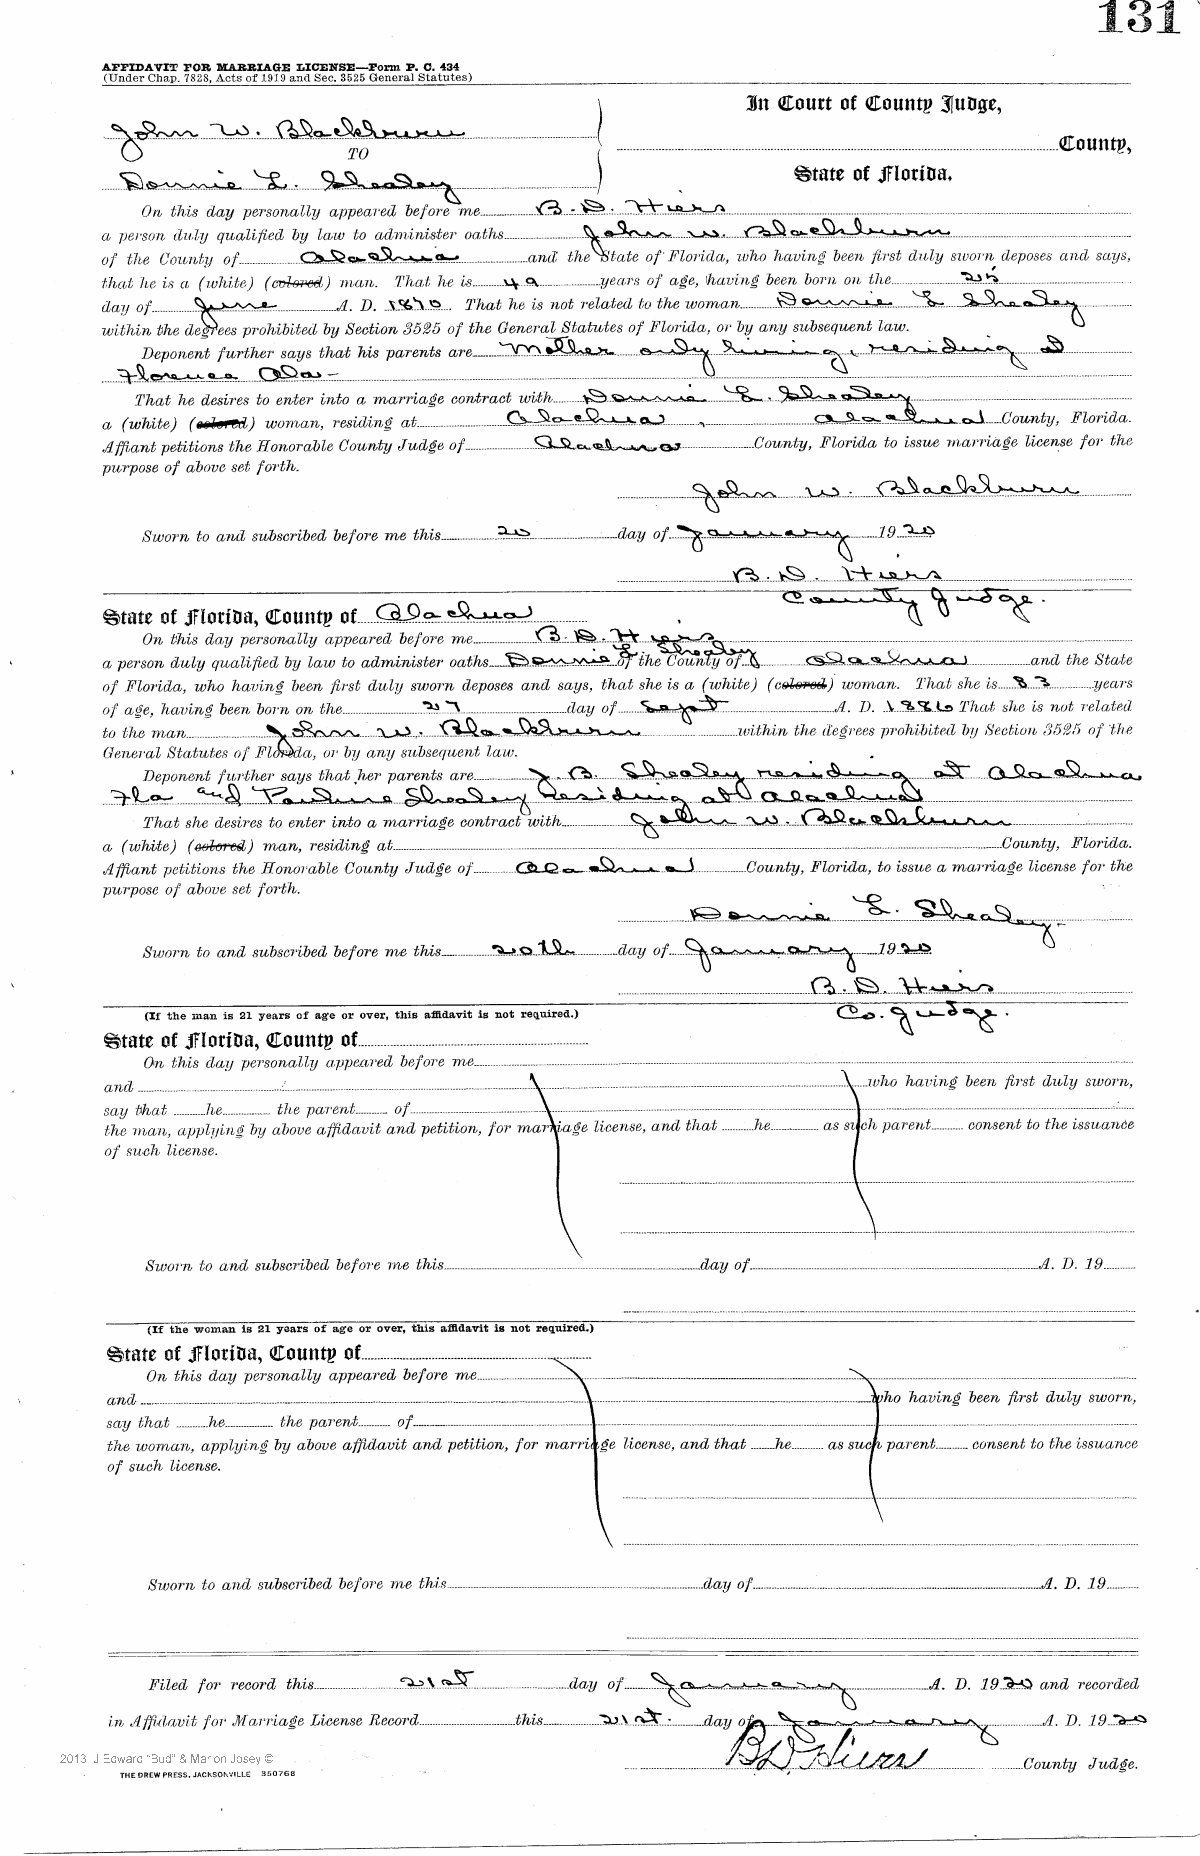 131
AFFIDAVIT FOR MARRIAGE LICENSE—Form P. C. 434
(Under Chap. 7828, Acts of 1919 and Sec. 3525 General Statutes)
John W. Blackburn
TO
Donnie L. Shealey
In Court of County Judge,
County,
State of Florida.
On this day personally appeared before me B. D. Hiers
a person duly qualified by law to administer oaths John W. Blackburn
of the County of Alachua and the State of Florida, who having been first duly sworn deposes and says,
that he is a (white) (colored) man. That he is 49 years of age, having been born on the 25
day of June A. D. 1870. That he is not related to the woman Donnie L Shealey
within the degrees prohibited by Section 3525 of the General Statutes of Florida, or by any subsequent law.
Deponent further says that his parents are Mother only living, residing at
Florence Ala-
That he desires to enter into a marriage contract with Donnie L. Shealey
a (white) (colored) woman, residing at Alachua, Alachua County, Florida.
Affiant petitions the Honorable County Judge of Alachua County, Florida to issue marriage license for the
purpose of above set forth.
John W. Blackburn
Sworn to and subscribed before me this 20 day of January 1920
B. D. Hiers
County Judge.
State of Florida, County of Alachua
On this day personally appeared before me B. D. Hiers
a person duly qualified by law to administer oaths Donnie L. Shealey of the County of Alachua and the State
of Florida, who having been first duly sworn deposes and says, that she is a (white) (colored) woman. That she is 33 years
of age, having been born on the 27 day of Sept A. D. 1886 That she is not related
to the man John W. Blackburn within the degrees prohibited by Section 3525 of the
General Statutes of Florida, or by any subsequent law.
Deponent further says that her parents are J. B. Shealey residing at Alachua
Fla and Pauline Shealey residing at Alachua
That she desires to enter into a marriage contract with John W. Blackburn
a (white) (colored) man, residing at County, Florida.
Affiant petitions the Honorable County Judge of Alachua County, Florida, to issue a marriage license for the
purpose of above set forth.
Donnie L. Shealey-
Sworn to and subscribed before me this 20th day of January 1920
B. D. Hiers
Co. Judge.
(If the man is 21 years of age or over, this affidavit is not required.)
State of Florida, County of
On this day personally appeared before me
and who having been first duly sworn,
say that he the parent of
the man, applying by above affidavit and petition, for marriage license, and that he as such parent consent to the issuance
of such license.
Sworn to and subscribed before me this day of A. D. 19
(If the woman is 21 years of age or over, this affidavit is not required.)
State of Florida, County of
On this day personally appeared before me
and who having been first duly sworn,
say that he the parent of
the woman, applying by above affidavit and petition, for marriage license, and that he as such parent consent to the issuance
of such license.
Sworn to and subscribed before me this day of A. D. 19
Filed for record this 21st day of January A. D. 1920 and recorded
in Affidavit for Marriage License Record this 21st. day of January A. D. 1920
B D. Hiers County Judge.
2013 J Edward "Bud" & Marion Josey ©
THE DREW PRESS, JACKSONVILLE 350768